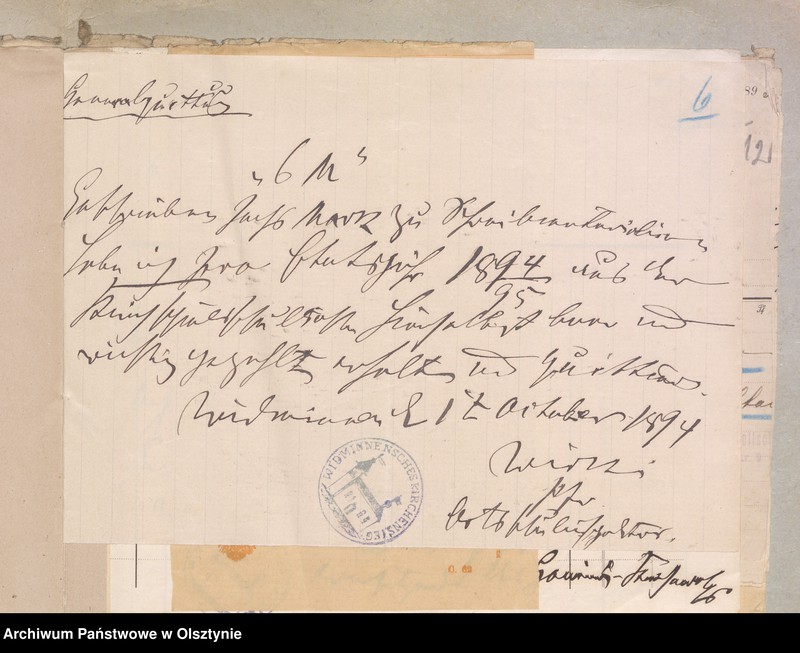 Generalquittung
6
„6 M“
Geschrieben sechs Mark zu Schreibmaterialien
habe ich pro Etatsjahr 1894/95 aus der
Kirchschulkasse hierselbst baar und
richtig gezahlt erhalten und quittire.
Widminnen d 1t October 1894
Pfr
Ortsschulinspektor.
WIDMINNENSCHES KIRCHENSIEGEL
89
12
37
C. 62
Archiwum Państwowe w Olsztynie